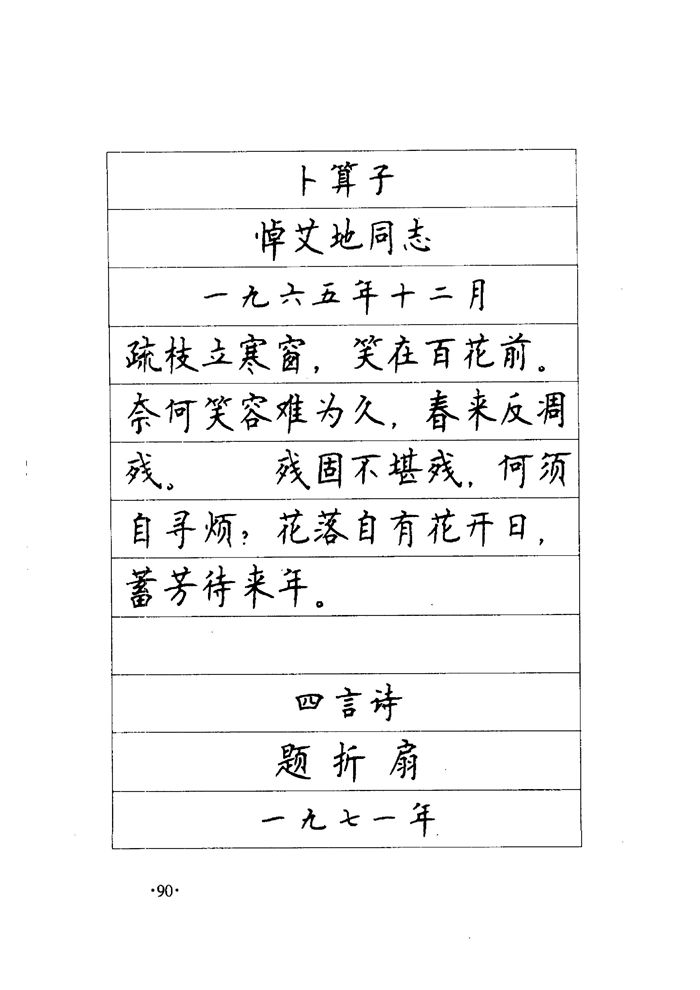 卜算子
悼艾地同志
一九六五年十二月
疏枝立寒窗，笑在百花前。
奈何笑容难为久，春来反凋
残。 残固不堪残，何须
自寻烦？花落自有花开日，
蓄芳待来年。
四言诗
题折扇
一九七一年
·90·